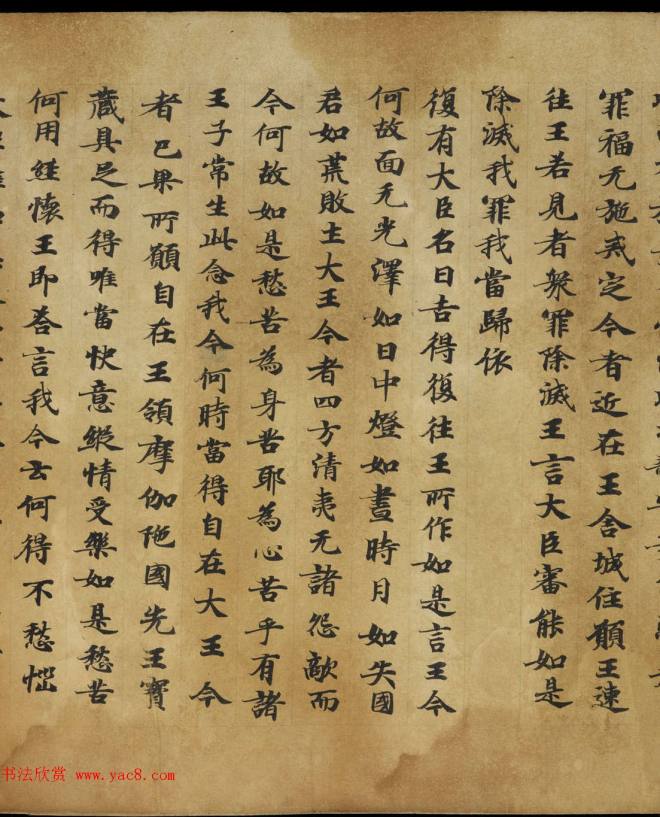 罪福无施戒定今者近在王舍城住願王速
往王若見者衆罪除滅王言大臣審能如是
除滅我罪我當歸依
復有大臣名曰吉得復往王所作如是言王今
何故面无光澤如日中燈如晝時月如失國
君如荒敗主大王今者四方清夷无諸怨敵而
今何故如是愁苦為身苦耶為心苦乎有諸
王子常生此念我今何時當得自在大王今
者已果所願自在王領摩伽陁國先王寶
蔵具足而得唯當快意縱情受樂如是愁苦
何用經懷王即荅言我今云何得不愁惱
书法欣赏 www.yac8.com